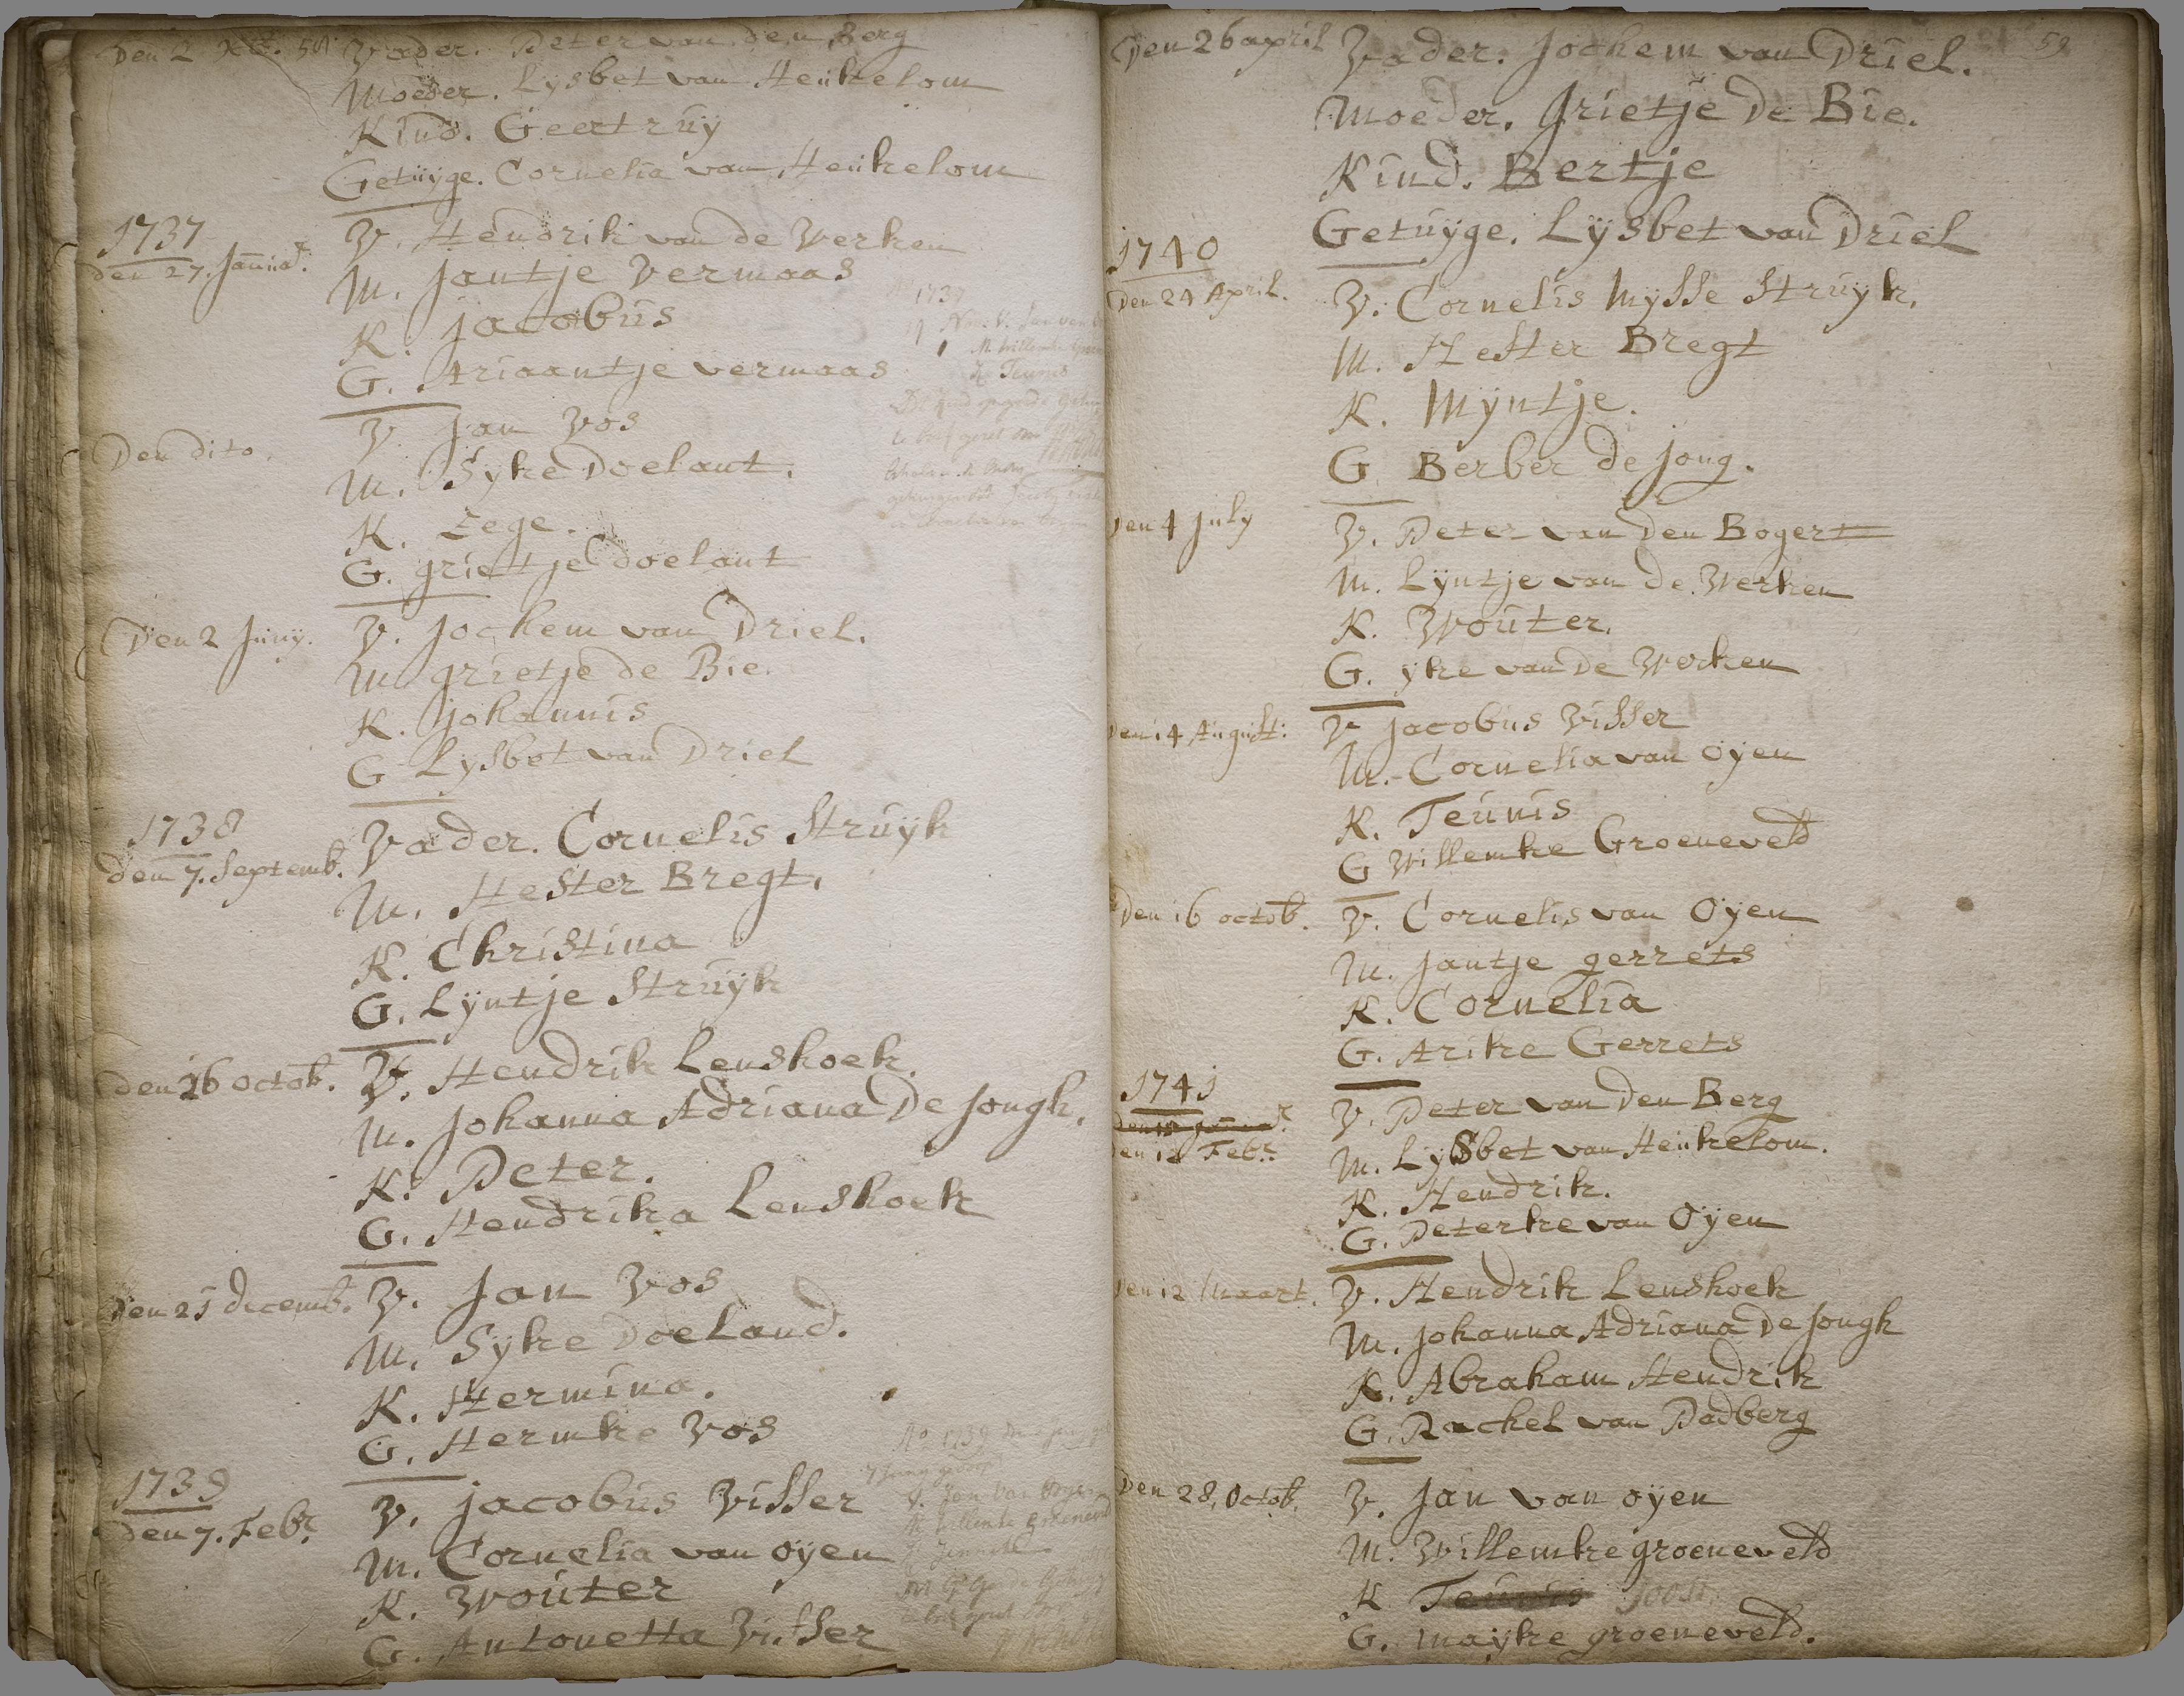 Den 2 Vader. Peter van den Berg
Moeder. Lysbet van Heukelom
Kind. Geertruy
Getuyge. Cornelia van Heukelom
1737
den 27. Januar.
V. Hendrik van de Werken
M. Jantje vermaas
K. Jacobus
G. Ariaantje vermaas
1737
Teunis
Den dito.
V. Jan Vos
M. Syke Doelant.
K. Eege.
G. grietje doelant
Den 2 Juny.
V. Jochem van Driel.
M. grietje de Bie.
K. Johannis
G Lysbet van Driel
1738
den 7. Septemb.
Vader. Cornelis Struyk
M. Hester Bregt.
K. Christina
G. Lyntje Struyk
den 26 octob.
V. Hendrik Lenshoek.
M. Johanna Adriana De Jongh.
K. Peter.
G. Hendrika Lenshoek
Den 25 decemb.
V. Jan Vos
M. Syke Doeland.
K. Hermina.
G. Hermke Vos
1739
den 7. Febr.
V. Jacobus Visser
M. Cornelia van oyen
K. Wouter
G. Antonetta Visser
Ao 1739
59
Den 26 april
Vader. Jochem van Driel.
Moeder. Grietje De Bie.
Kind. Bertje
Getuyge. Lysbet van Driel
1740
Den 24 April.
V. Cornelis Mysse Struyk.
M. Hester Bregt
K. Myntje.
G Berber de jong.
Den 4 July
V. Peter van Den Bogert
M. Lyntje van de Werken
K. Wouter.
G. yke van De Werken
Den 14 August:
V Jacobus Visser
M. Cornelia van oyen
K. Teunis
G Willemke Groeneveld
Den 16 octob.
V. Cornelis van Oyen
M. Jantje gerrets
K. Cornelia
G. Arike Gerrets
1741
den 12 Febr.
V. Peter van Den Berg
M. Lysbet van Heukelom.
K. Hendrik.
G. Peterke van Oyen
Den 12 Maart.
V. Hendrik Lenshoek
M. Johanna Adriana De Jongh
K. Abraham Hendrik
G. Rachel van Padberg
Den 28. Octob.
V. Jan van oyen
M. Willemke groeneveld
K Teunis Joost
G. mayke groeneveld.